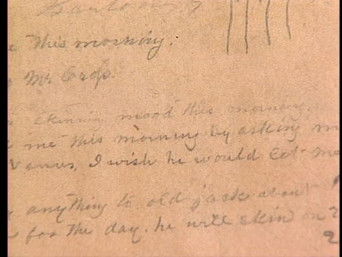 this morning.
Mr Crop.
skinnin mood this morning.
me this morning by asking m
I wish he would let me
anything to old jack about
for the day. he will skin on